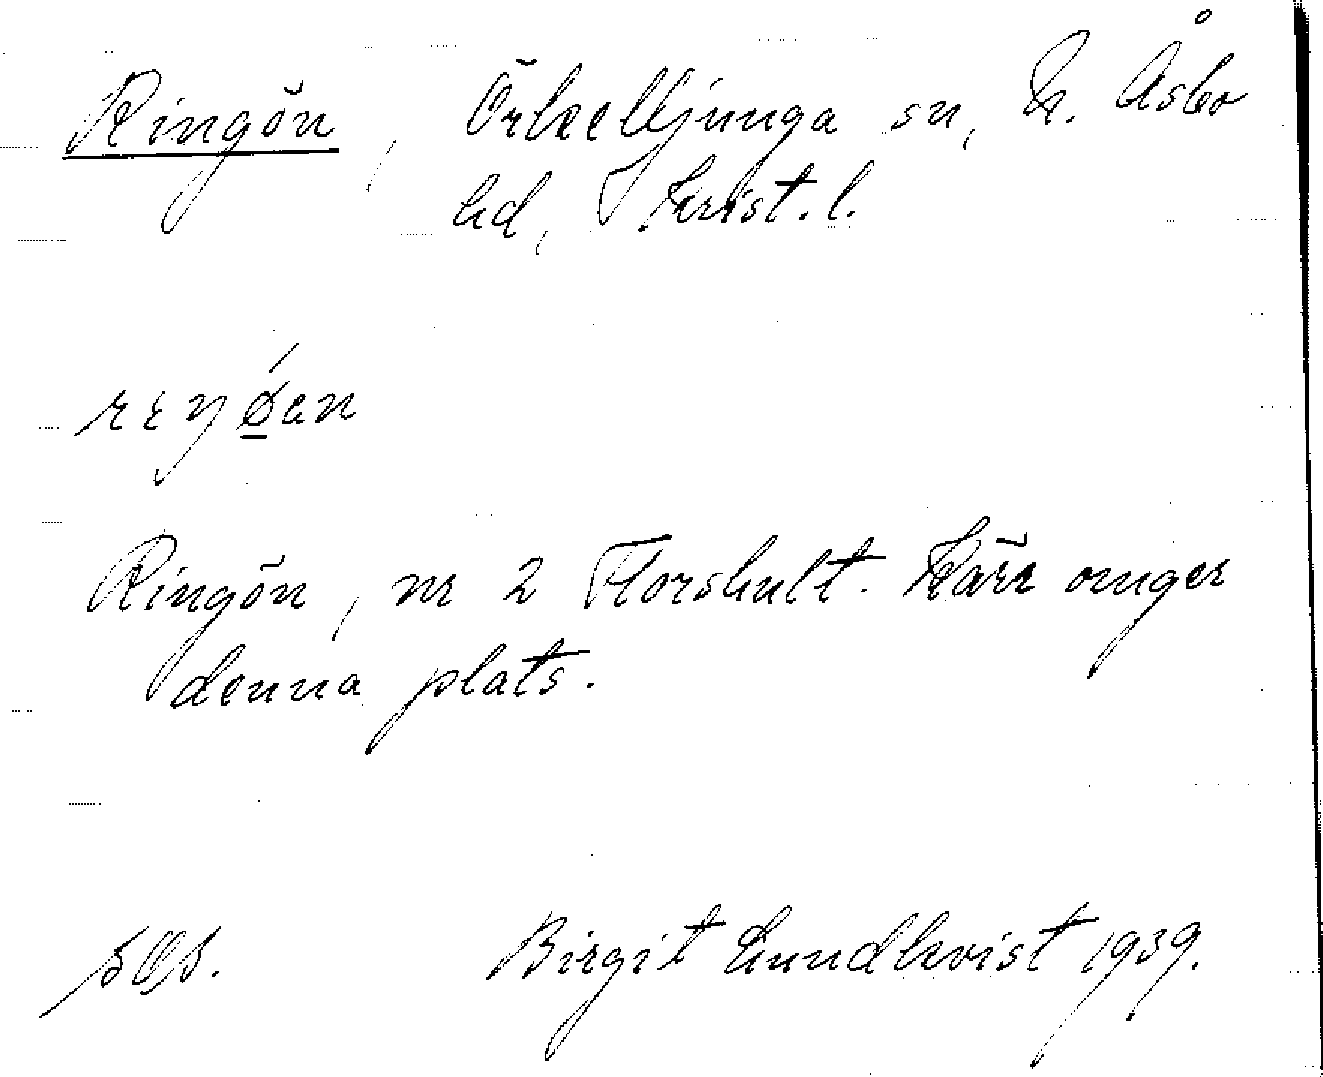 Ringön, Örkelljunga sn, N. Åsbo
hd, Krist. l.
Ringön, nr 2 Florshult. Kärr omger
denna plats.
Birgit Lundkvist 1939.